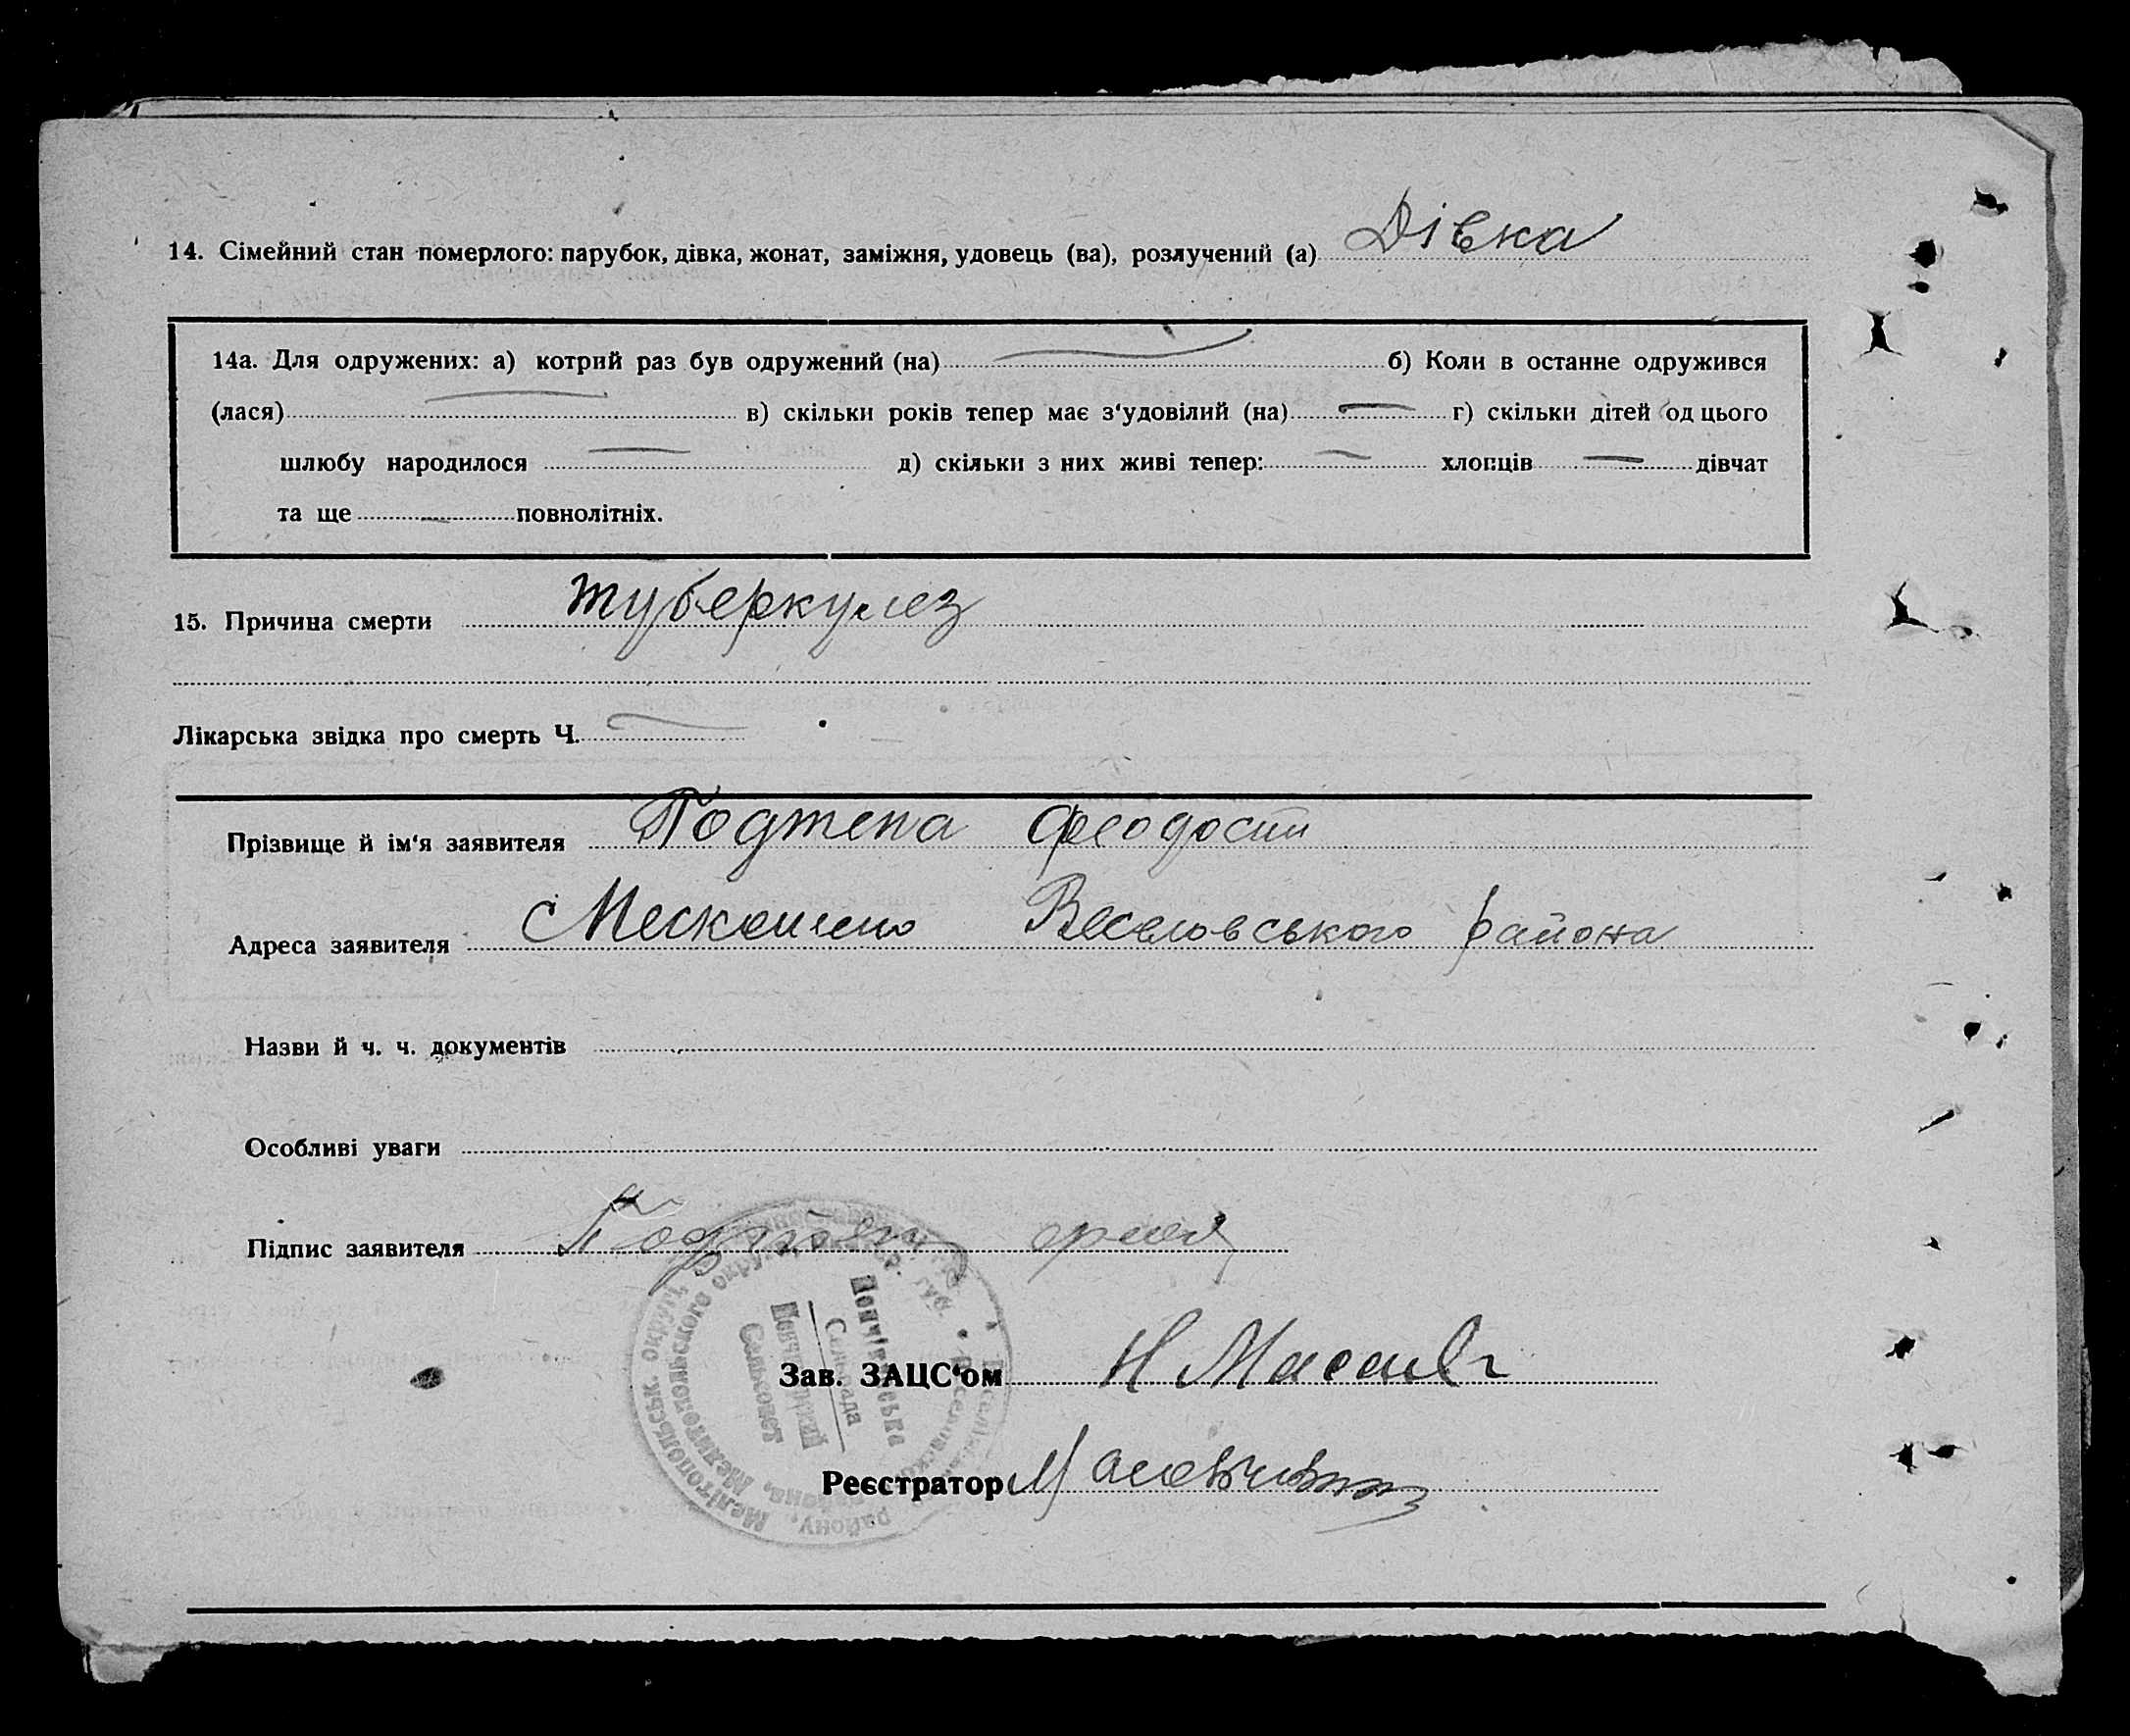 14. Сімейний стан померлого: парубок, дівка, жонат, заміжня, удовець (ва), розлучений (а) Дівка
14а. Для одружених: а) котрий раз був одружений (на) б) Коли в останне одружився
(лася) в) скільки років тепер має з'удовілий (на) г) скільки дітей од цього
шлюбу народилося д) скільки з них живі тепер: хлопців дівчат
та ще повнолітніх.
15. Причина смерти туберкулез
Лікарська звідка про смерть Ч.
Прізвище й ім'я заявителя Феодосій
Адреса заявителя с Веселовського района
Назви й ч. ч. документів
Особливі уваги
Підпис заявителя
Зав. ЗАЦС'ом Н
Реєстратор
Мелітопольськ. округи,
района, Мелитопольского округа,
Сельрада
Сельсовет
району,